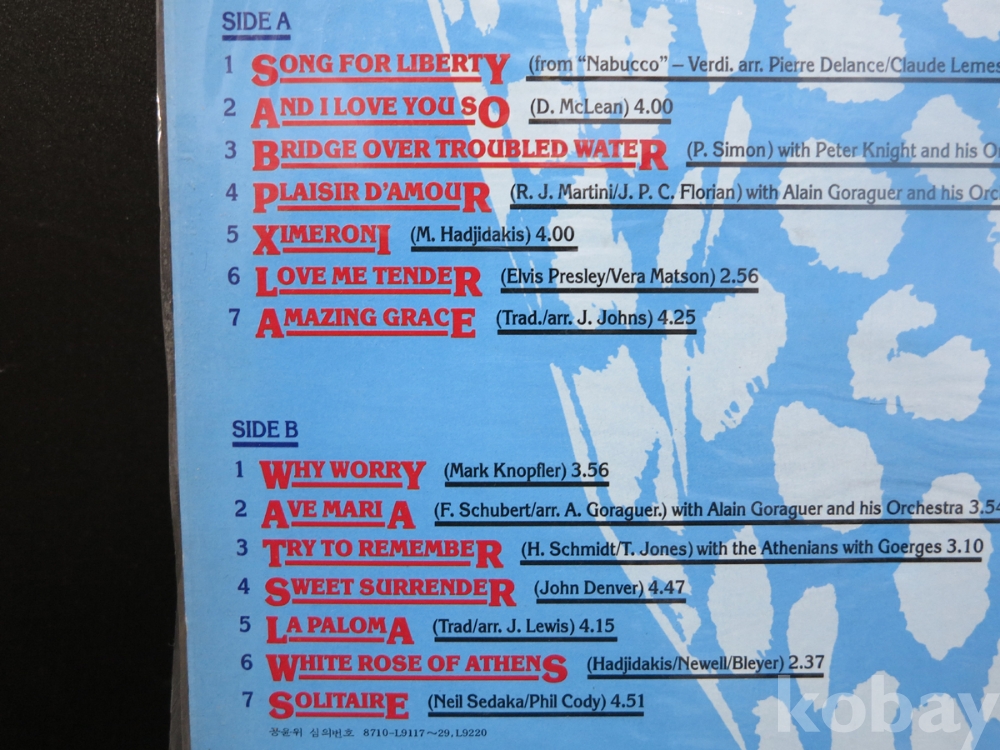 SIDE A
1 SONG FOR LIBERTY (from “Nabucco” – Verdi. arr. Pierre Delance/Claude Lemes
2 AND I LOVE YOU SO (D. McLean) 4.00
3 BRIDGE OVER TROUBLED WATER (P. Simon) with Peter Knight and his Or
4 PLAISIR D'AMOUR (R. J. Martini/J. P. C. Florian) with Alain Goraguer and his Orc
5 XIMERONI (M. Hadjidakis) 4.00
6 LOVE ME TENDER (Elvis Presley/Vera Matson) 2.56
7 AMAZING GRACE (Trad./arr. J. Johns) 4.25
SIDE B
1 WHY WORRY (Mark Knopfler) 3.56
2 AVE MARIA (F. Schubert/arr. A. Goraguer.) with Alain Goraguer and his Orchestra 3.54
3 TRY TO REMEMBER (H. Schmidt/T. Jones) with the Athenians with Goerges 3.10
4 SWEET SURRENDER (John Denver) 4.47
5 LA PALOMA (Trad/arr. J. Lewis) 4.15
6 WHITE ROSE OF ATHENS (Hadjidakis/Newell/Bleyer) 2.37
7 SOLITAIRE (Neil Sedaka/Phil Cody) 4.51
공윤위 심의번호 8710-L9117～29, L9220
kobay